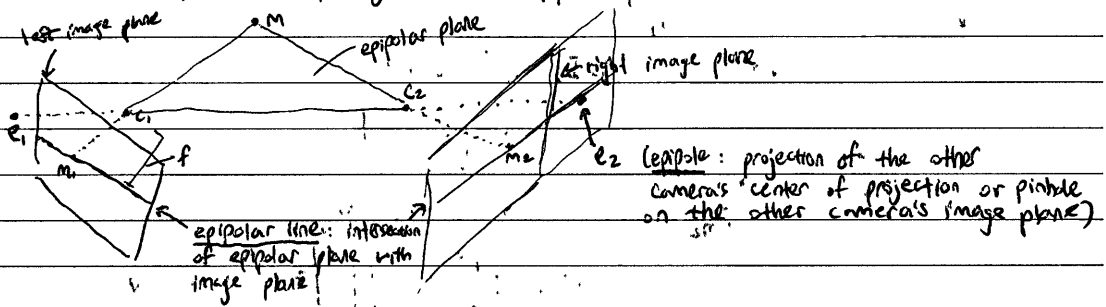 M
left image plane
epipolar plane
right image plane.
C2
C1
e1
m1
f
m2
e2 (epipole: projection of the other
camera's center of projection or pinhole
on the other camera's image plane)
epipolar line: intersection
of epipolar plane with
image plane